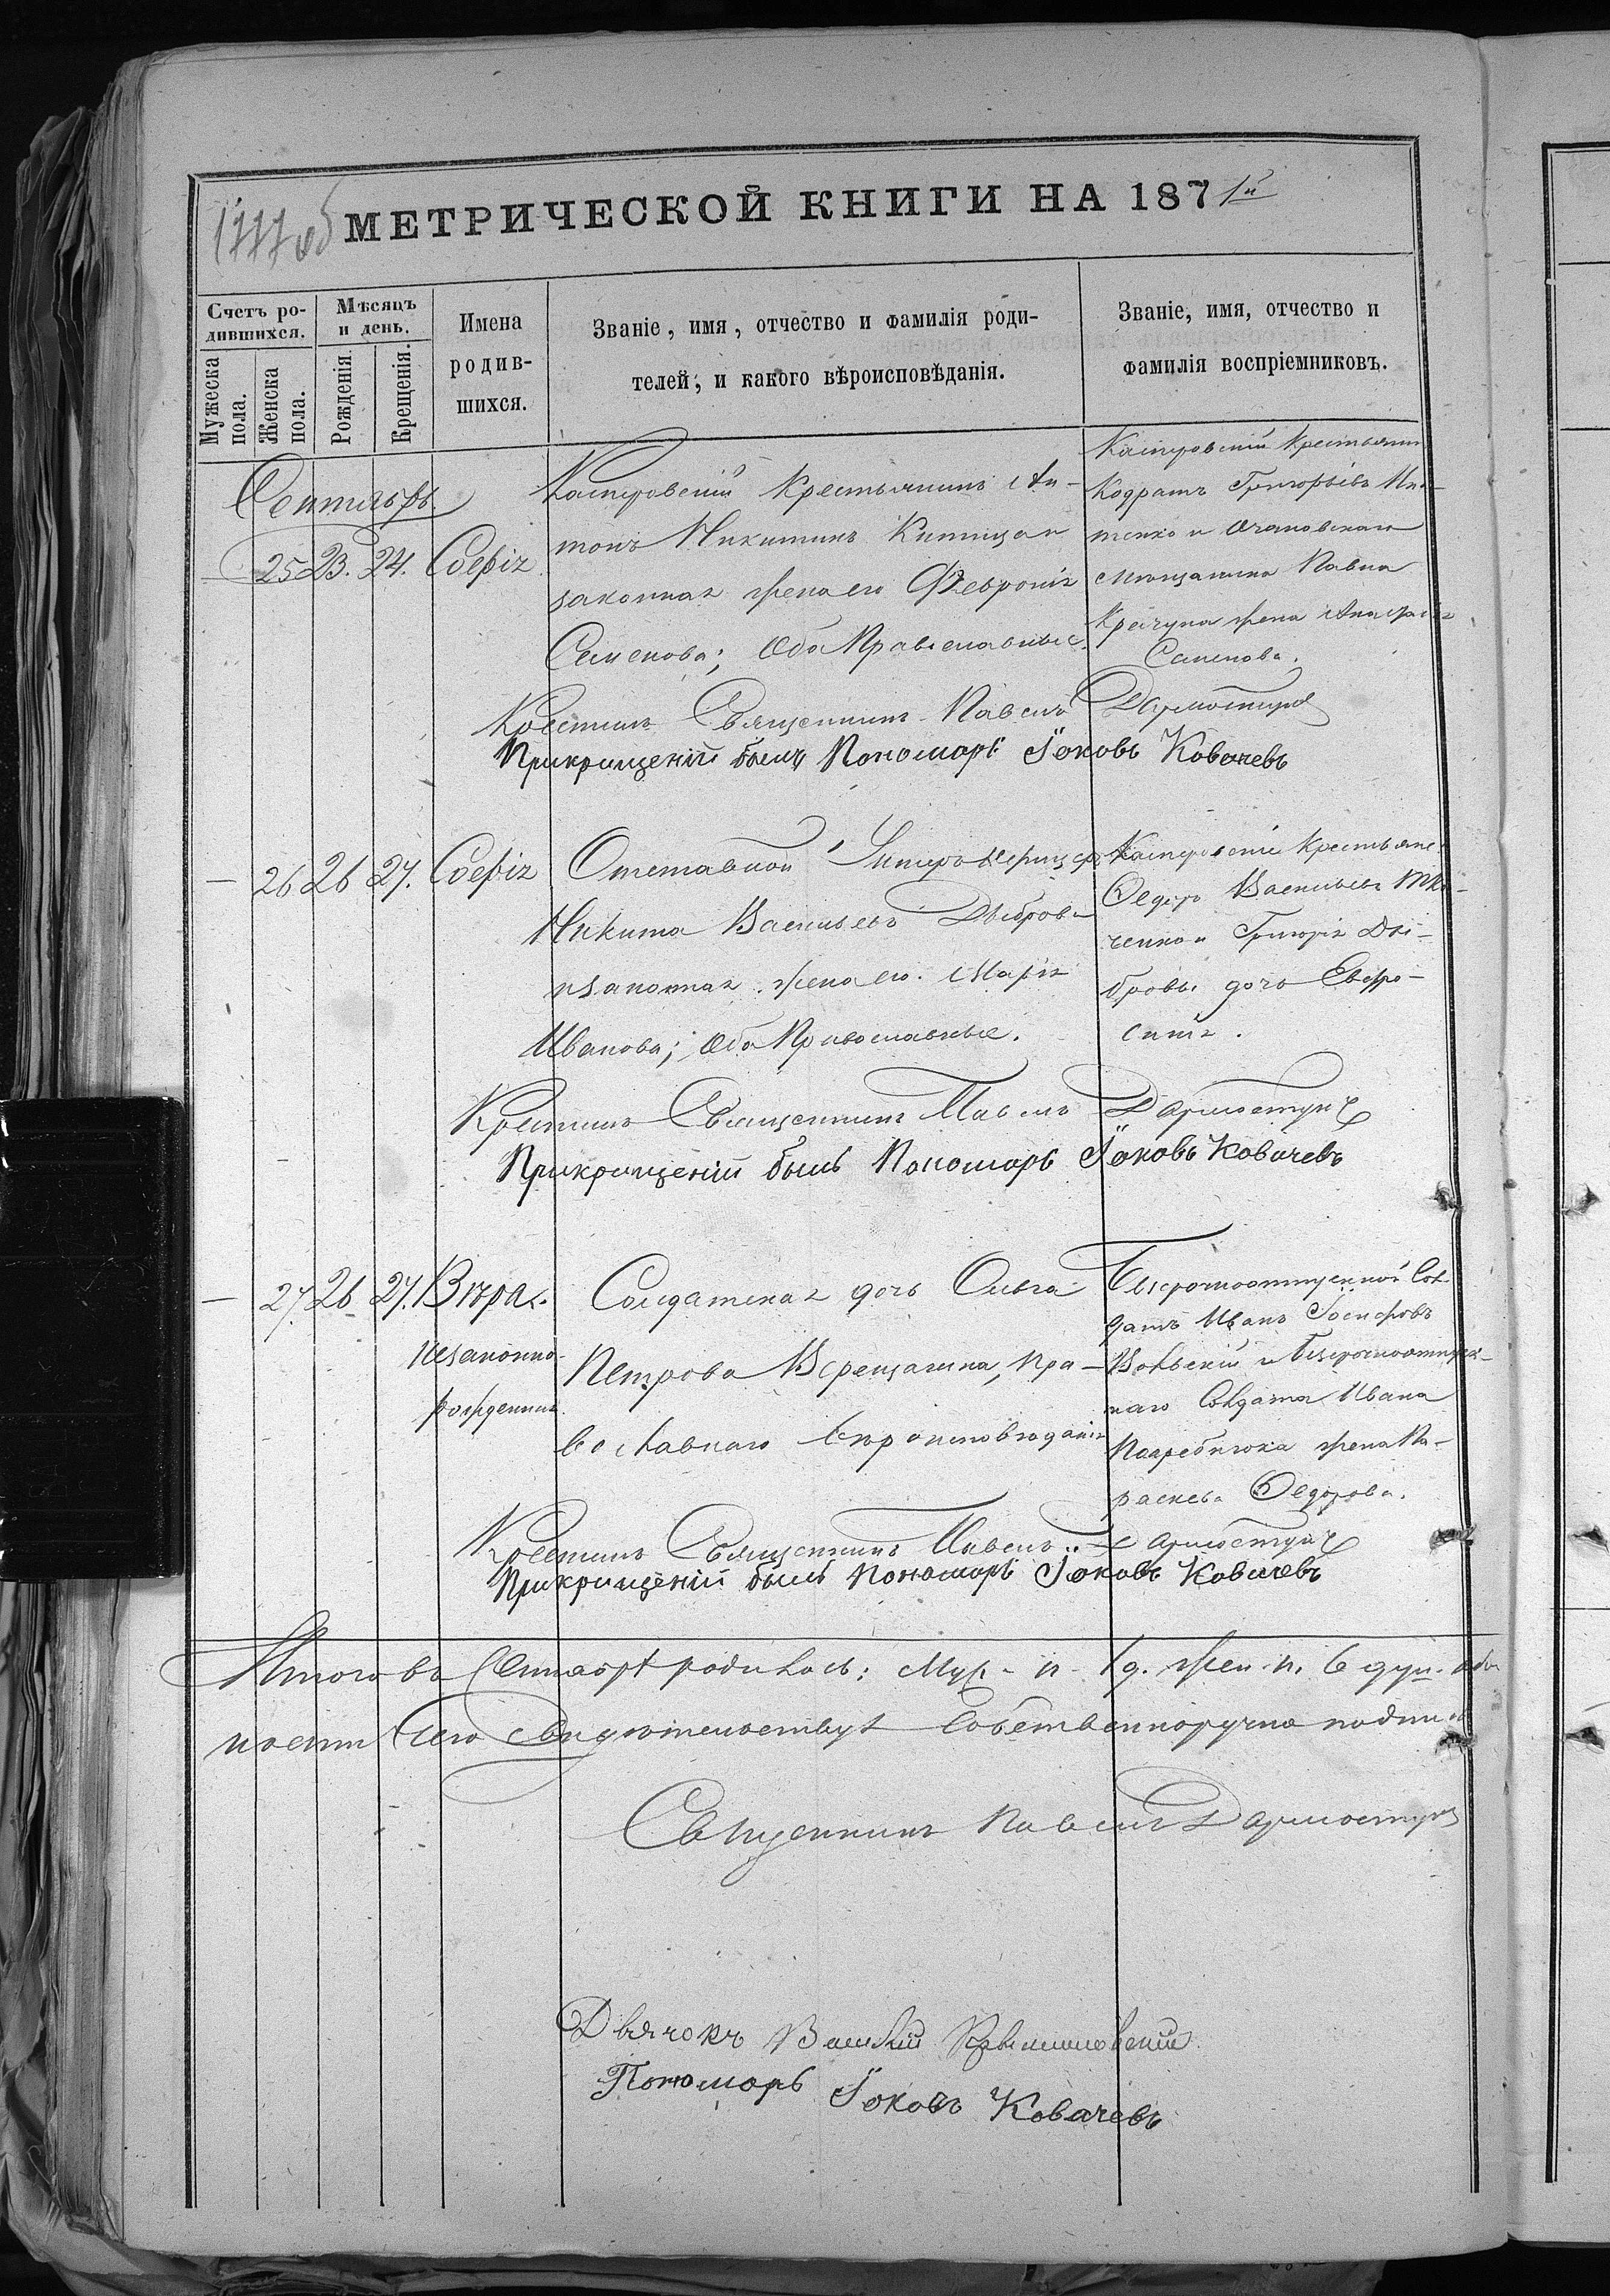 МЕТРИЧЕСКОЙ КНИГИ НА 1871й
Счетъ ро-
дившихся.
Мѣсяцъ
и день.
Мужеска
пола.
Женска
пола.
Рожденія.
Крещенія.
Имена
родив-
шихся.
Званіе, имя, отчество и фамилія роди-
телей, и какого вѣроисповѣданія.
Званіе, имя, отчество и
фамилія воспріемниковъ.
Сентябрь.
25 23. 24. Софія
Касперовскій Крестьянинъ Ан-
тонъ Никитинъ и
законная жена его Февронія
Семенова; Оба Православные.
Касперовскій Крестьянинъ
Кодратъ Григорьевъ
тенко и Очаковскаго
мѣщанина Павла
Кречуна жена Анастасія
Семенова.
Крестилъ Священникъ Павелъ
Прикрищеній былъ Пономарь Іоковъ Ковачевъ
— 26 26 27. Софія
Отставной Унтеръ Офицеръ
Никита Васильевъ Дѣброва
и законная жена его Марія
Иванова; Оба Православные.
Касперовскіе Крестьяне:
Федоръ Васильевъ Тка-
ченко и Григорія Дѣ-
бровы дочь Евфро-
синія.
Крестилъ Священникъ Павелъ
Прикрищеній былъ Пономарь Іоковъ Ковачевъ
— 27. 26 27. Вѣра.
незаконно-
рожденная
Солдатская дочь Ольга
Петрова Верещагина, Пра-
вославнаго Вѣроисповѣданія
Безсрочноотпускной Сол-
датъ Иванъ Іосифовъ
и Безсрочноотпуск-
наго Солдата Ивана
жена Па-
раскева Федорова.
Крестилъ Священникъ Павелъ
Прикрищеній былъ Пономарь Іоковъ Ковачевъ
Итого въ Сентябрѣ родилось: Муж. п. 1 д. жен. п. 6 душ. обо
Чего Свидѣтельствуѣ Собственноручно
Священникъ Павелъ
Дьячокъ
Пономарь Іоковъ Ковачевъ